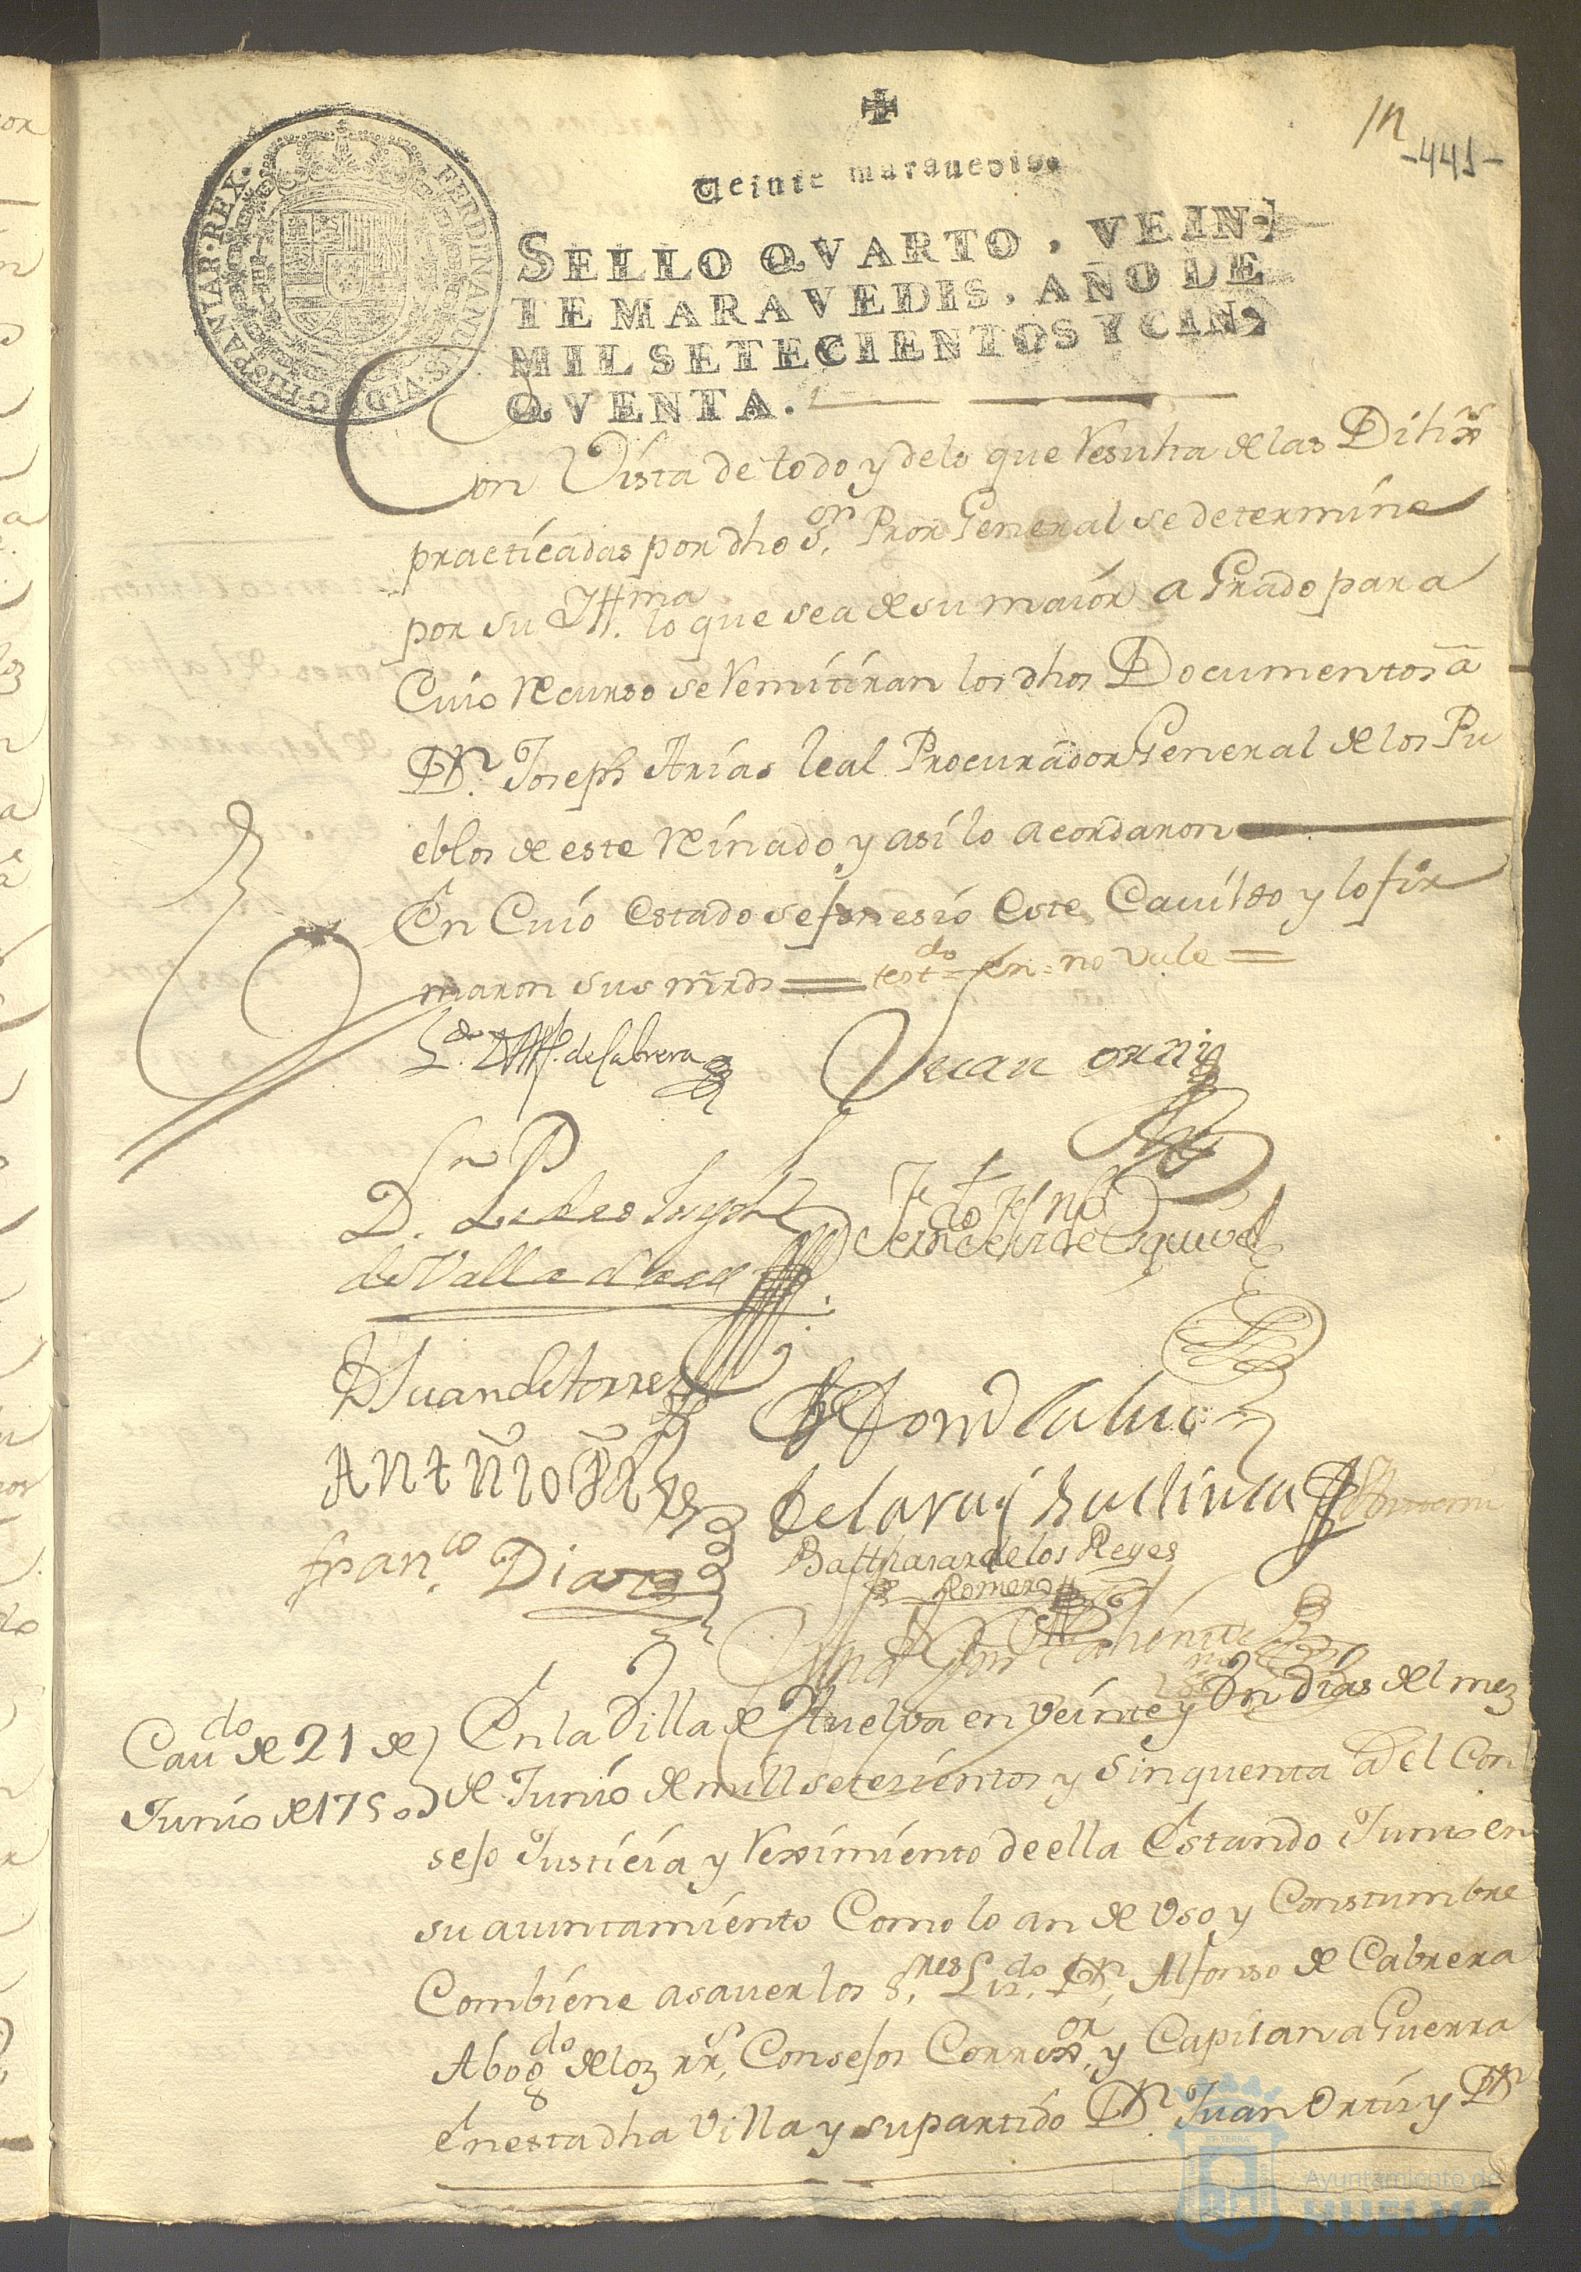 -441-
Veinte maravedis.
SELLO QVARTO, VEIN-
TE MARAVEDIS, AÑO DE
MIL SETECIENTOS Y CIN-
QVENTA.
FERDINANDUS VI D G HISPANIAR REX
Con Vista de todo y delo que Resulta de las Dilix.s
practicadas por dho s.on Pror General se determine
por su Ill.ma lo que sea de su maior aGrado para
Cuio Recurso se Remitiran los dhos Documentos a
D.n Joseph Arias leal Procurador General de los Pu
eblos de este Reinado y asi lo acordaron
En Cuio estado se fenesio este Cavildo y lo fir
maron sus mrds = test.do = = no vale =
L.do D Alf. de Cabrera
Juan ortiz
D. Pedro Joseph
de Valladares
de Esquivel
D Juan de torres
Antonio
fran.co Diaz
Balthasar de los Reyes
Romero
Cav.do de 21 de
Junio de 1750
En la Villa de Huelva en veinte y Un dias del mez
de Junio de mill setesientos y sinquenta a el Con
sejo Justicia y Reximiento de ella Estando Juntos en
su aiuntamiento Como lo an de Uso y Constumbre
Combiene asaver los s.res Liz.do D.n Alfonso de Cabrera
Abog.do de loz rr.s Consejos Correx.or y Capitan a Guerra
En esta dha Villa y su partido D.n Juan Ortiz y D.n
Ayuntamiento de
HUELVA